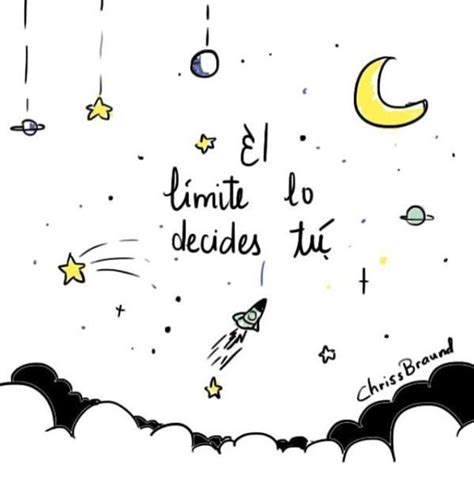 Èl
límite lo
decides tú
ChrissBraund